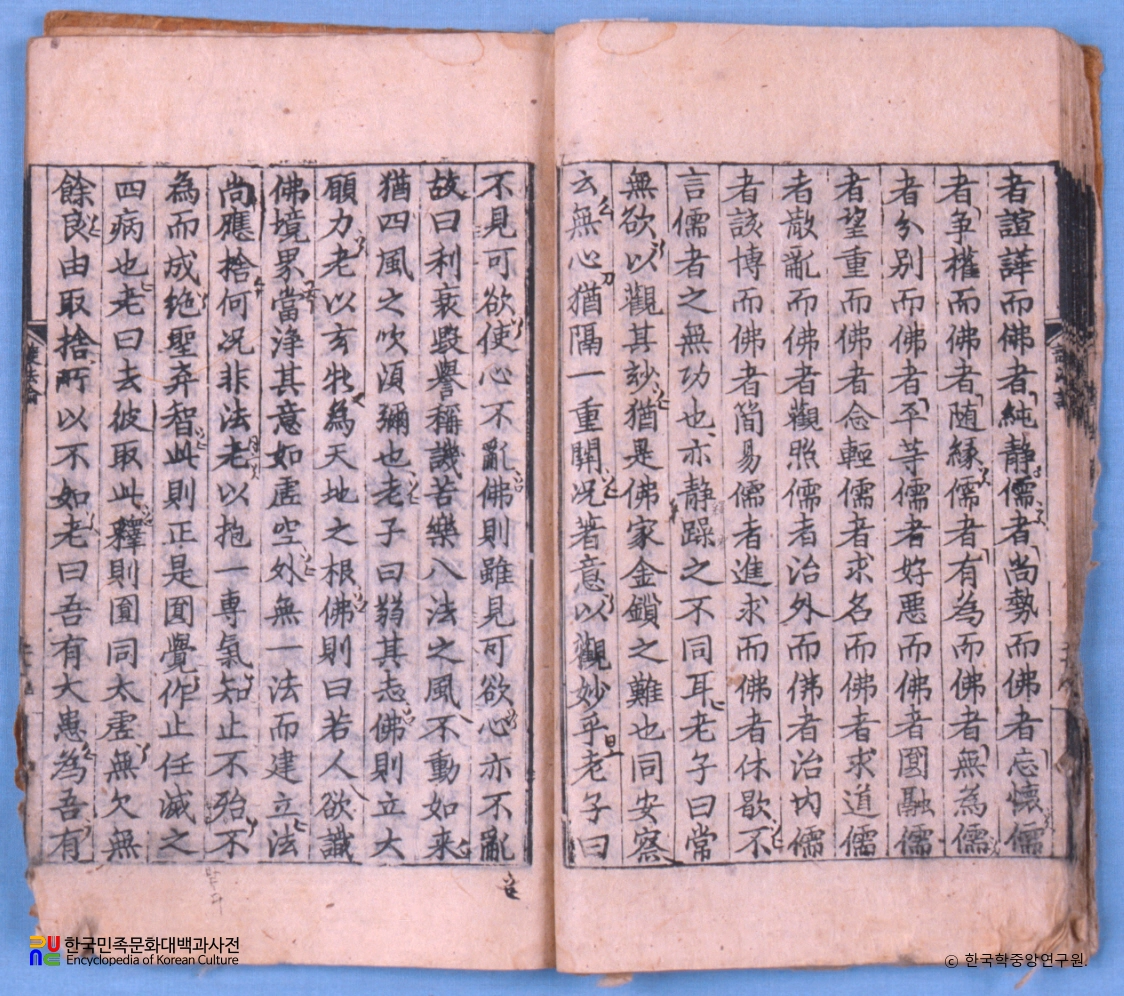 者諠譁而佛者純靜儒者尚勢而佛者忘懷儒
者争權而佛者随緣儒者有為而佛者無為儒
者分別而佛者平等儒者好惡而佛者圓融儒
者望重而佛者念輕儒者求名而佛者求道儒
者散亂而佛者觀照儒者治外而佛者治内儒
者該博而佛者簡易儒者進求而佛者休歇不
言儒者之無功也亦靜躁之不同耳老子曰常
無欲以觀其玅猶是佛家金鎖之難也同安察
云無心猶隔一重關况著意以觀妙乎老子曰
不見可欲使心不亂佛則雖見可欲心亦不亂
故曰利衰毀譽稱譏苦樂八法之風不動如来
猶四風之吹湏彌也老子曰弱其志佛則立大
願力老以玄牝為天地之根佛則曰若人欲識
佛境界當淨其意如虚空外無一法而建立法
尚應捨何况非法老以抱一專氣知止不殆不
為而成绝聖弃智此則正是圎覺作止任滅之
四病也老曰去彼取此釋則圎同太虚無欠無
餘良由取捨所以不如老曰吾有大患為吾有
한국민족문화대백과사전
Encyclopedia of Korean Culture
ⓒ 한국학중앙연구원.